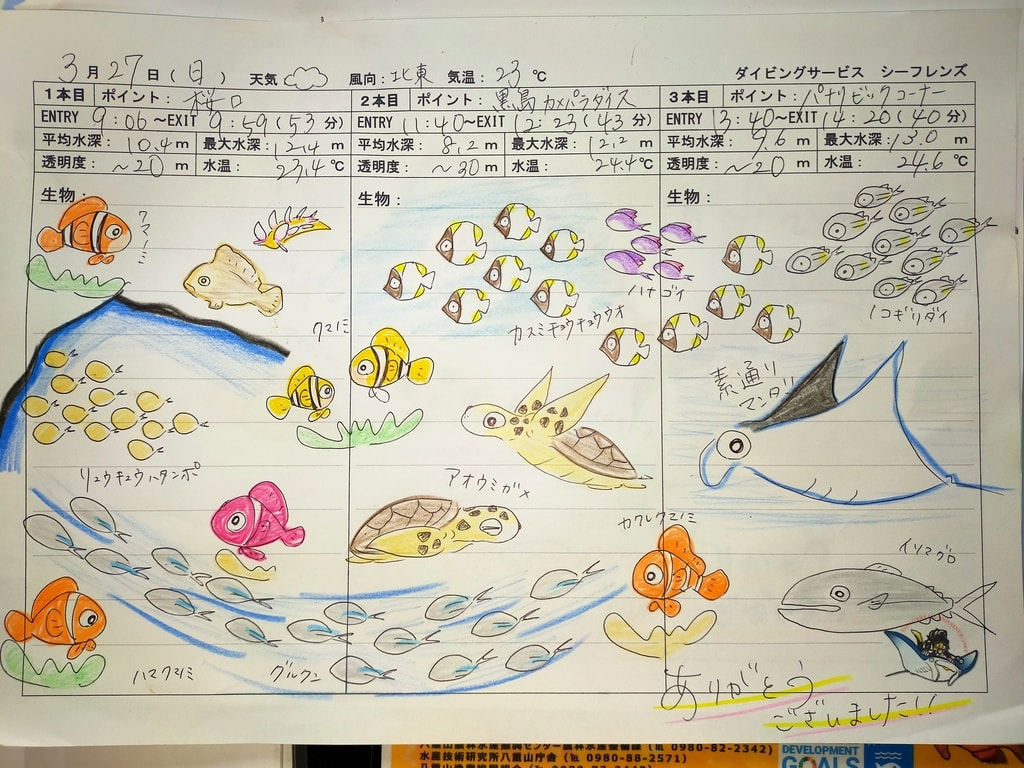 3月27日(日) 天気 風向:北東 気温:23℃ ダイビングサービス シーフレンズ
1本目 ポイント:桜口
ENTRY 9:06~EXIT 9:59(53分)
平均水深:10.4m 最大水深:12.4m
透明度:~20m 水温:23.4℃
生物:
クマノミ
クマノミ
リュウキュウハタンポ
ハマクマノミ
グルクン
2本目 ポイント:黒島カメパラダイス
ENTRY 11:40~EXIT 12:23(43分)
平均水深:8.2m 最大水深:12.2m
透明度:~30m 水温:24.4℃
生物:
ハナゴイ
カスミチョウチョウウオ
アオウミガメ
3本目 ポイント:パナリビックコーナー
ENTRY 13:40~EXIT 14:20(40分)
平均水深:9.6m 最大水深:13.0m
透明度:~20m 水温:24.6℃
生物:
ノコギリダイ
素通り
マンタリ
カクレクマノミ
イソマグロ
ありがとう
ございました!!
八重山農林水産振興センター農林水産整備課(℡ 0980-82-2342)
水産技術研究所八重山庁舎(℡ 0980-88-2571)
DEVELOPMENT
GOALS